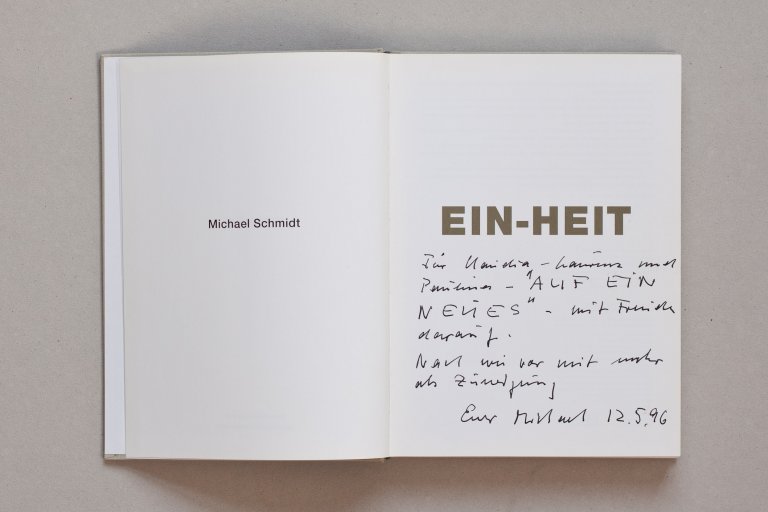 Michael Schmidt
EIN-HEIT
Für Claudia - Laurenz und
Paulina - "AUF EIN
NEUES" - mit Freude
darauf.
Nach wie vor mit mehr
als Zuneigung
Euer Michael 12.5.96